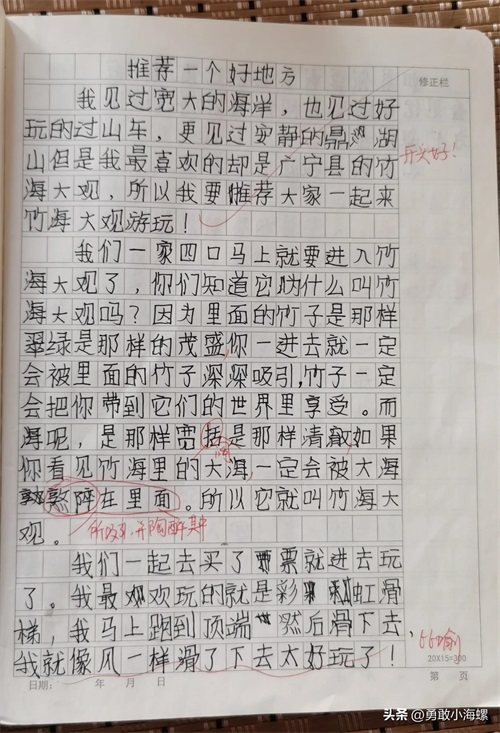 推荐一个好地方
修正栏
我见过宽大的海洋，也见过好
玩的过山车，更见过安静的鼎湖
山但是我最喜欢的却是广宁县的竹
开头好！
海大观，所以我要推荐大家一起来
竹海大观游玩！
我们一家四口马上就要进入竹
海大观了，你们知道它为什么叫竹
海大观吗？因为里面的竹子是那样
翠绿是那样的茂盛，你一进去就一定
会被里面的竹子深深吸引，竹子一定
会把你带到它们的世界里享受。而
海呢，是那样宽括是那样清澈，如果
阔
你看见竹海里的大海，一定会被大海
熬醉在里面。所以它就叫竹海大
观。
所吸引，并陶醉其中
我们一起去买了票就进去玩
了。我最欢玩的就是彩虹滑
梯，我马上跑到顶端然后滑下去，
我就像风一样滑了下去太好玩了！
20X15=300
日期： 年 月 日
第 页
头条 @勇敢小海螺